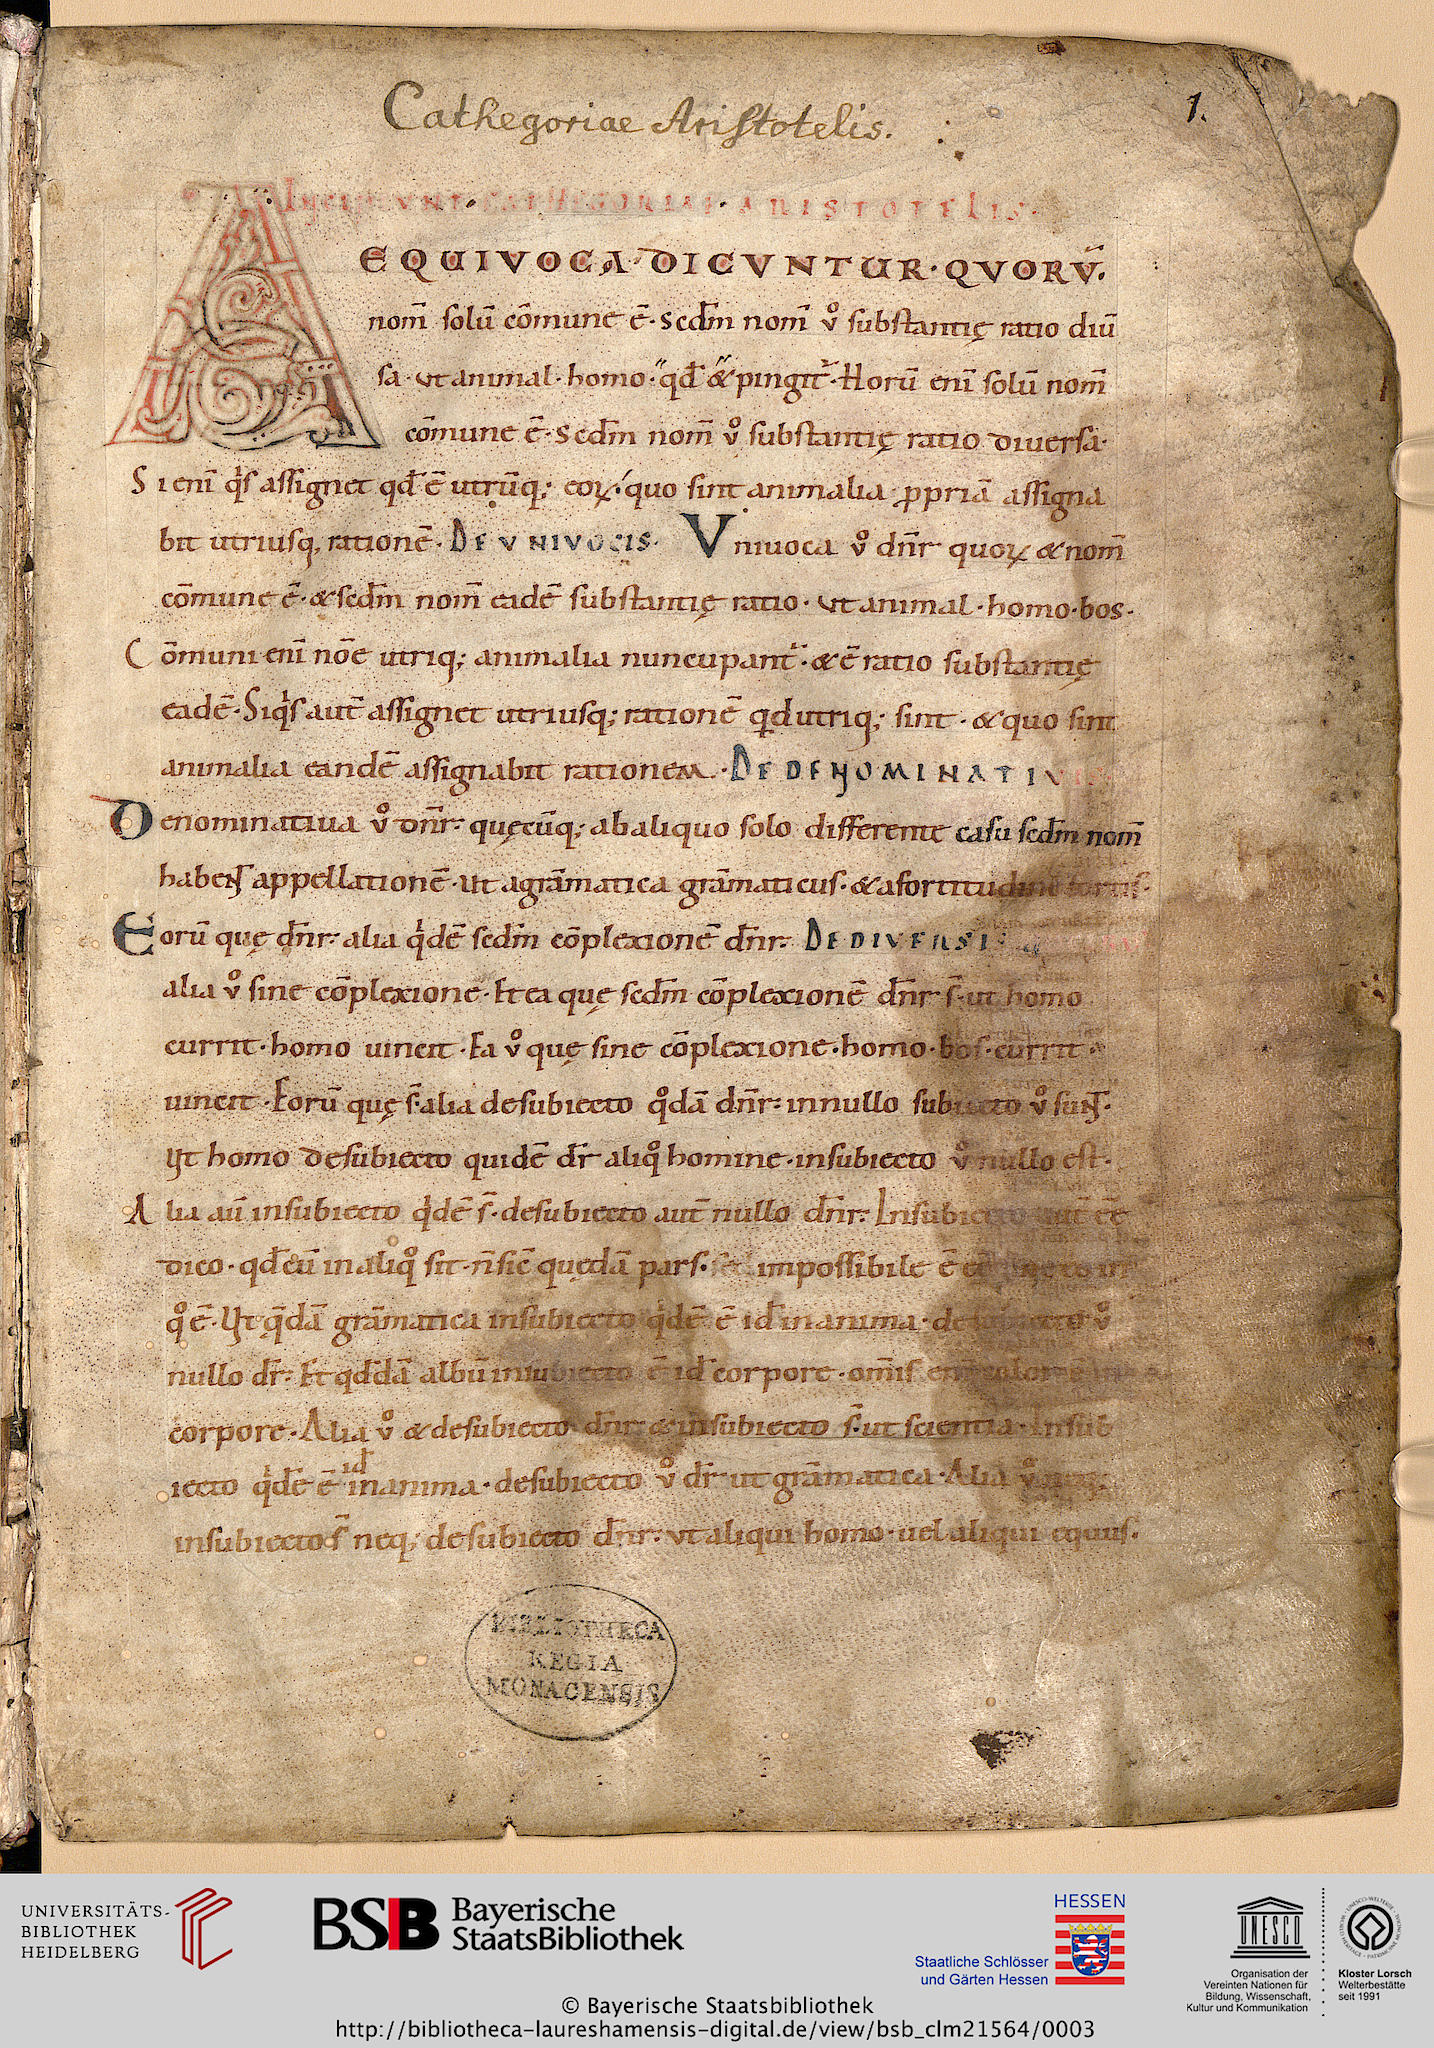 Cathegoriae Aristotelis.
1.
INCIPIUNT CATHEGORIAE ARISTOTELIS.
AEQUIVOCA DICVNTUR · QVORV̄.
nom̄ solū cōmune ē · scdm̄ nom̄ v̊ substantię ratio diū
sa · ut animal · homo · qd̄ & pingit᷑ · Horū eni̅ solū nom̄
cōmune ē · scdm̄ nom̄ v̊ substantię ratio diuersa ·
Si eni̅ qͥs assignet qd̄ ē utrūq; eoꝝ quo sint animalia ꝓpriā assigna
bit utriusq; rationē · DE VNIVOCIS · Vniuoca v̊ dn̄r quoꝝ & nom̄
cōmune ē · & scdm̄ nom̄ eadē substantię ratio · ut animal · homo · bos ·
Cōmuni eni̅ nōe utriq; animalia nuncupant᷑ · & ē ratio substantię
eadē · Siqͥs autē assignet utriusq; rationē qd utriq; sint · & quo sint
animalia eandē assignabit rationem · DE DENOMINATIVIS
Denominatiua v̊ dn̄r · quęcūq; ab aliquo solo differente casu scdm̄ nom̄
habent appellationē · ut a grāmatica grāmaticus · & a fortitudine fortis ·
Eorū quę dn̄r · alia qͥdē scdm̄ cōplexionē dn̄r · DE DIVERSI
alia v̊ sine cōplexione · Et ea quę scdm̄ cōplexionē dn̄r s̄ · ut homo
currit · homo uincit · Ea v̊ quę sine cōplexione · homo · bos · currit ·
uincit · Eorū quę s̄ · alia de subiecto qͦdā dn̄r · in nullo subiecto v̊ sunt ·
Ut homo de subiecto quidē dr̄ aliqͦ homine · in subiecto v̊ nullo est ·
Alia aū in subiecto qͥdē s̄ · de subiecto aut̄ nullo dn̄r · In subiecto aut̄ ēē
dico · qd̄ cū in aliqͦ sit · n̄ sic̄ quędā pars · sed impossibile ē
qͦ ē · Ut qͣdā grāmatica in subiecto qͥdē ē id in anima · de subiecto v̊
nullo dr̄ · Et qd̄dā albū in subiecto ē id corpore · om̄is eni̅ color
corpore · Alia v̊ & de subiecto dn̄r & in subiecto s̄ · ut scientia · In sub
iecto qͥdē ē id in anima · de subiecto v̊ dr̄ ut grāmatica · Alia v̊ neq;
in subiecto s̄ neq; de subiecto dn̄r · ut aliqui homo · uel aliqui equus ·
BIBLIOTHECA
REGIA
MONACENSIS
UNIVERSITÄTS-
BIBLIOTHEK
HEIDELBERG
BSB Bayerische
StaatsBibliothek
HESSEN
Staatliche Schlösser
und Gärten Hessen
UNESCO
Organisation der
Vereinten Nationen für
Bildung, Wissenschaft,
Kultur und Kommunikation
Kloster Lorsch
Welterbestätte
seit 1991
© Bayerische Staatsbibliothek
http://bibliotheca-laureshamensis-digital.de/view/bsb_clm21564/0003